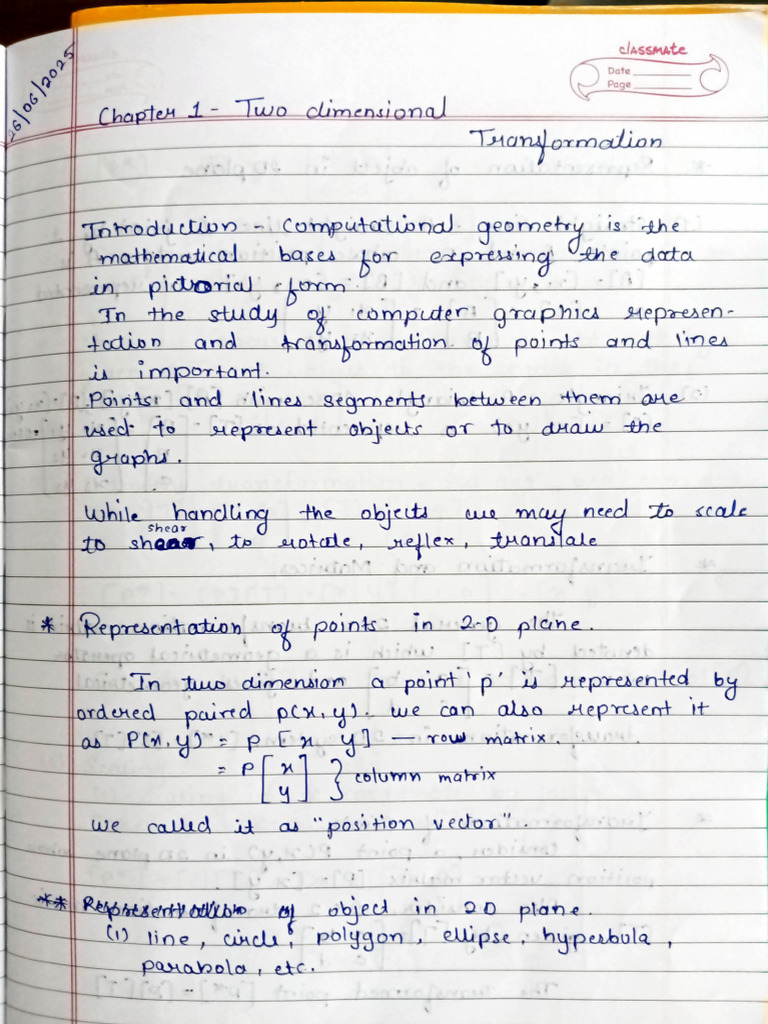 26/06/2025
classmate
Date
Page
Chapter 1 - Two dimensional
Transformation
Introduction - Computational geometry is the
mathematical bases for expressing the data
in pictorial form
In the study of computer graphics represen-
tation and transformation of points and lines
is important.
Points and lines segments between them are
used to represent objects or to draw the
graphs.
While handling the objects we may need to scale
shear
to shear, to rotate, reflex, translate
* Representation of points in 2-D plane.
In two dimension a point 'p' is represented by
ordered paired p(x,y). we can also represent it
as P(x,y) = P [x y] — row matrix.
= P [x y] } column matrix
we called it as "position vector".
** Representation of object in 2D plane.
(1) line, circle, polygon, ellipse, hyperbula,
parabola, etc.